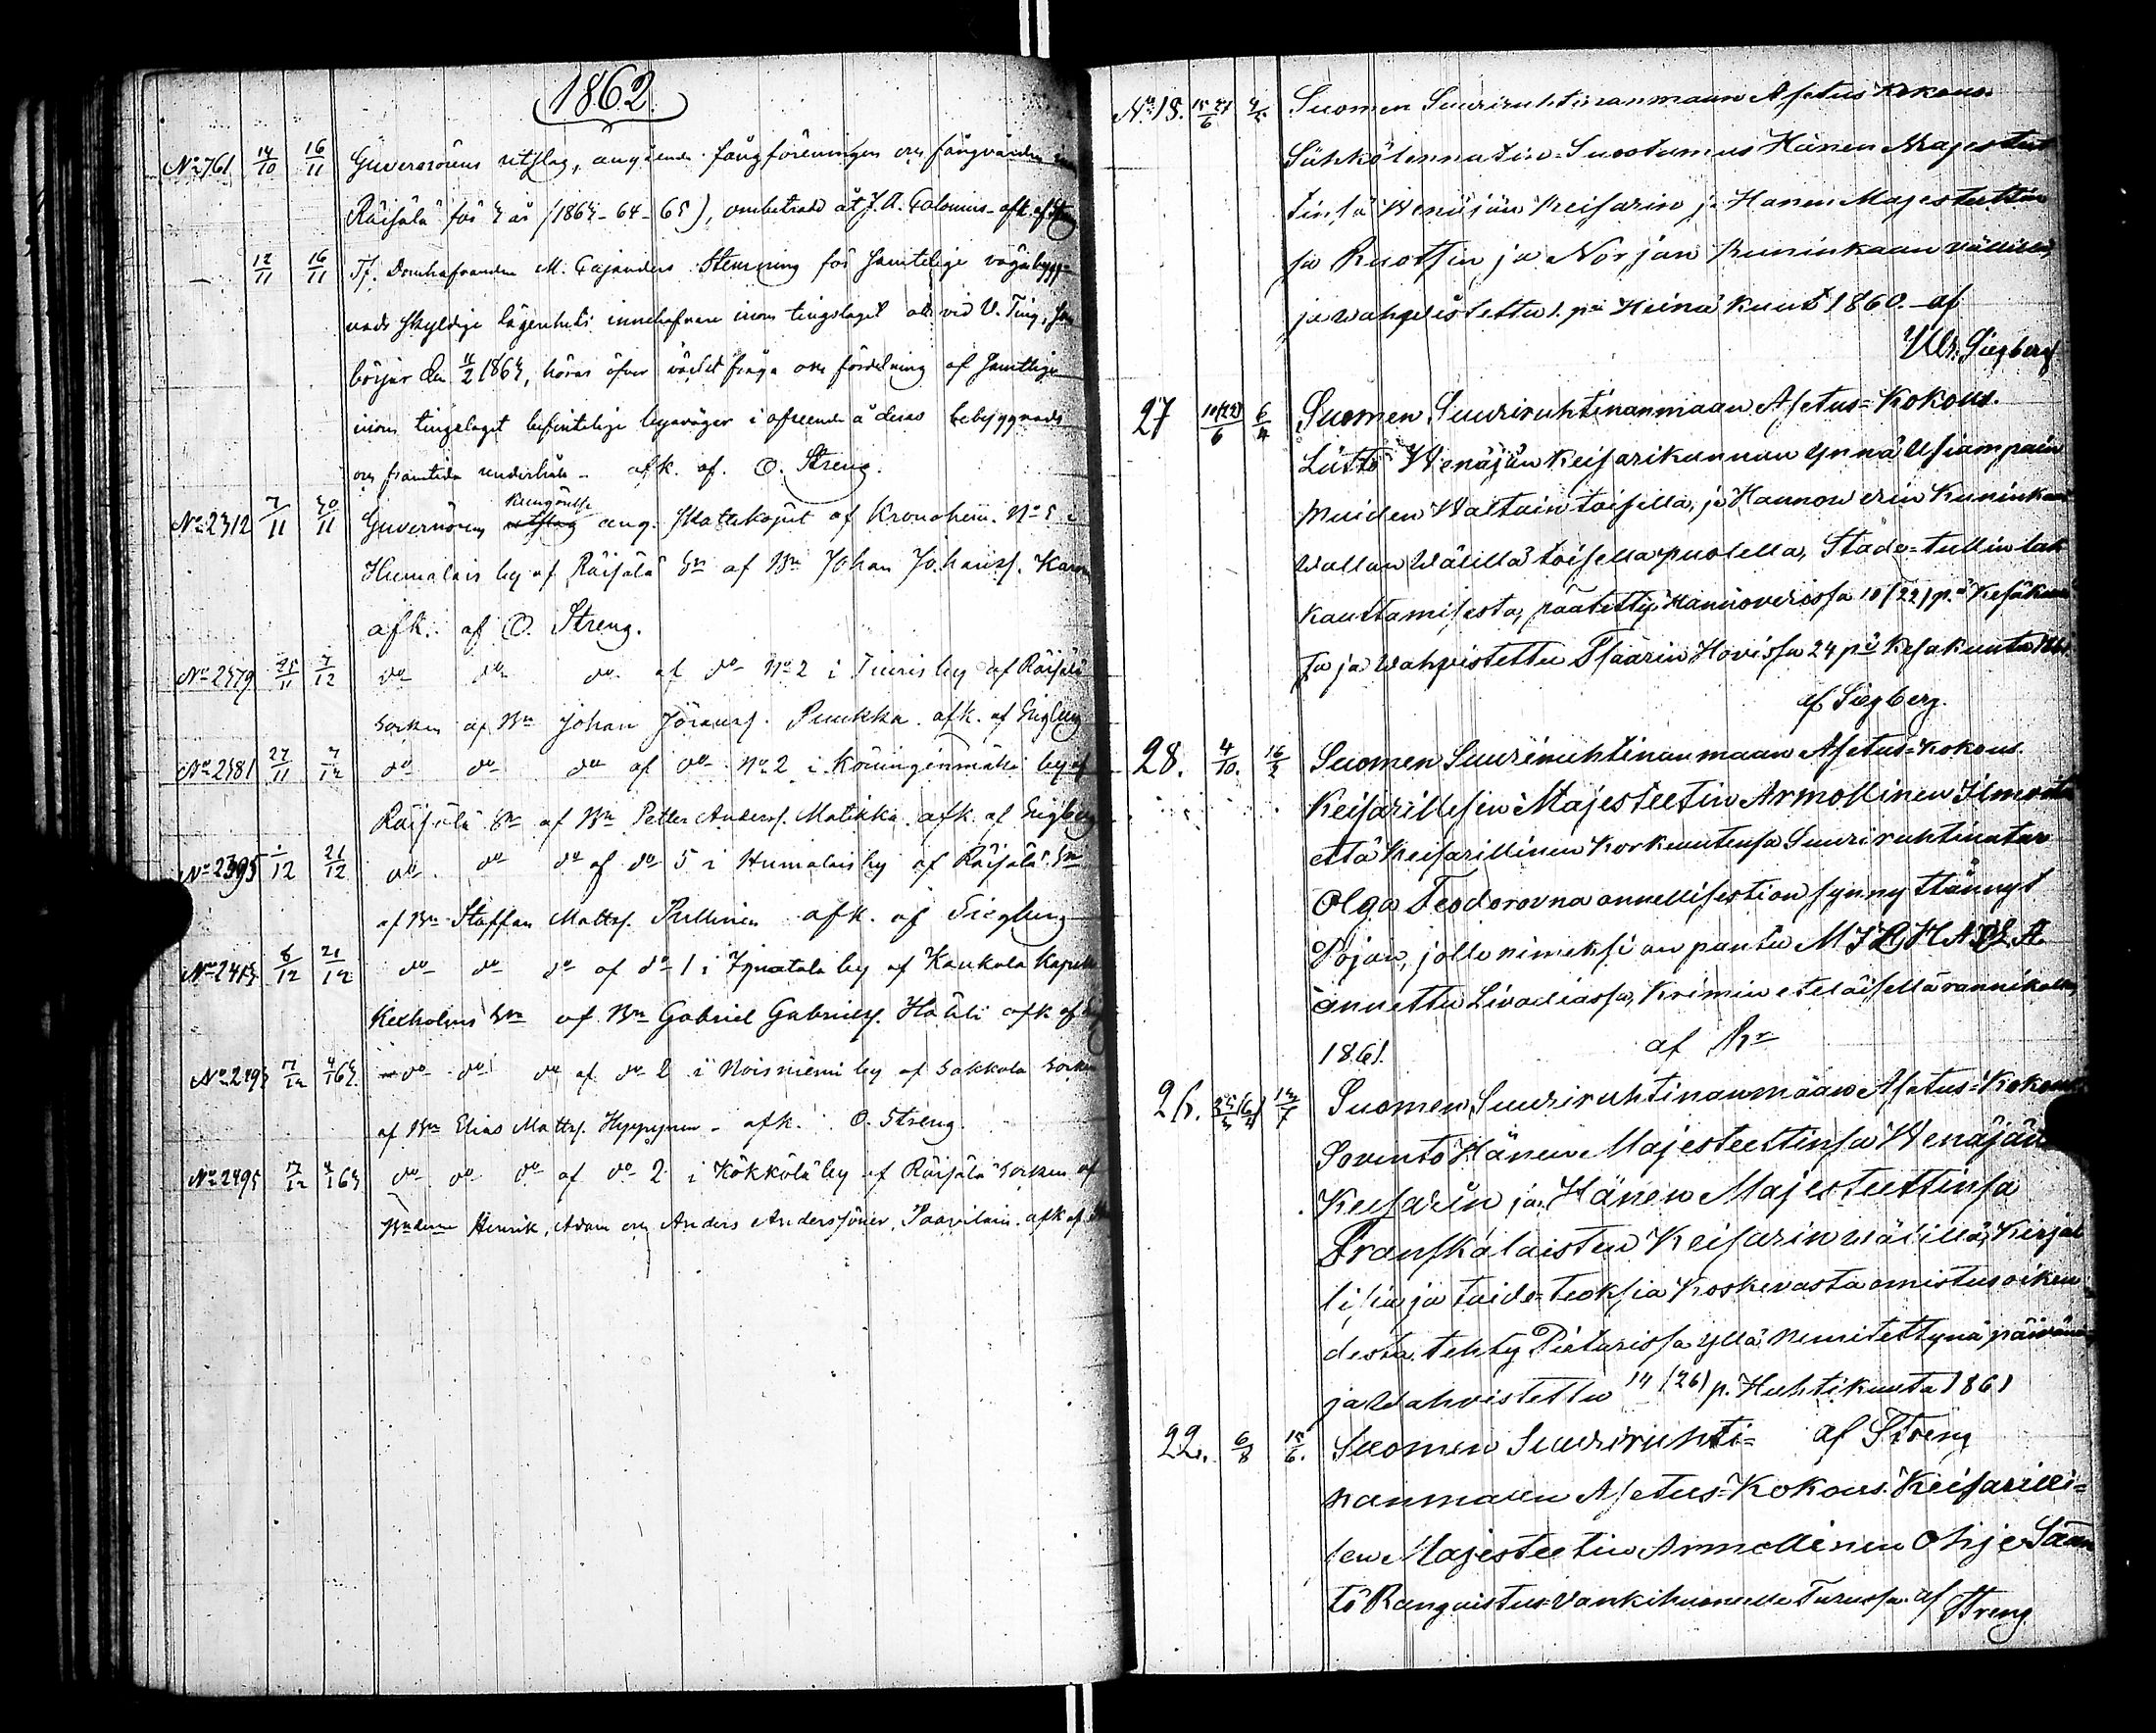 1862.
No 761 14/10 16/11 Guvernörens utslag, angående fångföreningen och fångvården
Räisälä för 3 år (1863-64-65), ombetrodd åt J. A. Calonius. afk. af
12/11 16/11 Tf. Domhafvanden M. Cajanders Stemning för samtelige vägabygg-
nads skyldige lägenhets innehafvare inom tingslaget att vid V. Ting, som
börjar den 11/2 1863, höras öfver väckt fråga om fördelning af samtlige
inom tingslaget befintelige byavägar i afseende å deras bebyggnads
och framtida underhåll - afk. af. O. Streng.
No 2312 7/11 30/11 Guvernörens Kungörelse ang. skatteköpet af Kronohem. No 5 i
Humalais by af Räisälä Sn af Bn Johan Johanss.
afk. af O. Streng.
No 2379 25/11 7/12 do do do af do No 2 i Tiuris by af Räisälä
socken af Bn Johan Jöranss. Puukka. afk. af
No 2381 27/11 7/12 do do do af do No 2 i Köninginmäki by af
Räisälä Sn af Bn Petter Anderss. Matikka. afk. af
No 2395 1/12 21/12 do do do af do 5 i Humalais by af Räisälä Sn
af Bn Staffan Matts. Pullinen afk. af
No 2413 8/12 21/12 do do do af do 1 i Ignatala by af Kaukola Kapell
Kexholms Sn af Bn Gabriel Gabriels. afk af
do do do af do 2 i Noisniemi by af Sakkola socken
af Bn Elias Matts. Hyppynen - afk. O. Streng.
No 2495 do do do af do 2 i Kökkölä by af Räisälä socken af
Henrik, Adam och Anders Anderssöner, Paavilain. afk af
No 18. Suomen Suuriruhtinanmaan Asetus Kokous.
Sähkölennatin-Suostumus Hänen Majestee
tinsä Wenäjän Keisarin ja Hänen Majesteettin
sa Ruotsin ja Norjan Kuninkaan välillä,
ja wahwistettu 1. p:ä Heinä Kuut 1860. af
Ulr. Siegberg
27 10(22)/6 6/4 Suomen Suuriruhtinanmaan Asetus-Kokous.
Liitto Wenäjän Keisarikunnan ynnä Usiampain
muiden Waltain toisella, ja Hannowerin Kuninkaan
wallan Wälillä toisella puolella, Stade-tullin lak
kauttamisesta, päätetty Hannoverissa 10 (22) p.ä Kesäkuu
ta ja wahvistettu Tsaarin Hovissa 24 p:ä Kesäkuuta
af Siegberg.
28. 4/10. Suomen Suuriruhtinanmaan Asetus-Kokous.
Keisarillisen Majesteetin Armollinen Ilmoitus
että Keisarillinen Korkeutensa Suuriruhtinatar
Olga Teodorovna onnellisesti on synnyttännyt
Pojan, jolle nimeksi on pantu MIKHAILA.
annettu Livadiassa, Krimin eteläisellä rannikolla
1861. af
26. Suomen Suuriruhtinanmaan Asetus-Kokous
Sovinto Hänen Majesteettinsa Wenäjän
Keisarin ja Hänen Majesteettinsa
Franskalaisten Keisarin wälillä, Kirjal
lisia ja taide-teoksia Koskevasta omistus oikeu
desta, tehty Pietarissa yllä nimitettynä päivänä
ja Wahvistettu 14 (26) p. Huhtikuuta 1861
af Streng
22. 6/8 15/6. Suomen Suuriruhti-
nanmaan Asetus-Kokous. Keisarilli-
sen Majesteetin Armollinen Ohje Sään
tö Rangaistus-Vankihuoneelle Turussa. af Streng